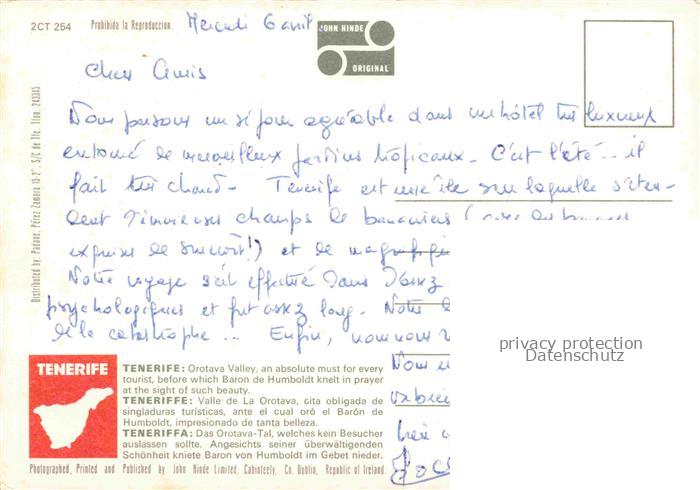 2CT 254 Prohibida la Reproduccion. Mercredi 6 avril
JOHN HINDE
ORIGINAL
Chers Amis
Nous passons un séjour agréable dans un hôtel très luxueux
entouré de merveilleux jardins tropicaux - C'est l'été .. il
fait très chaud - Ténérife est une île sur laquelle s'éten-
dent d'immenses champs de bananiers (avec des bananes
exquises de surcroît !) et de
Notre voyage s'est effectué dans
psychologiques et fut assez long. Notre
de la catastrophe ... Enfin, nous
Nous
Distributed by: Padane, Pérez Zamora 13-2°. S/C de Tfe. Tfno: 243345
privacy protection
Datenschutz
TENERIFE
TENERIFE: Orotava Valley, an absolute must for every
tourist, before which Baron de Humboldt knelt in prayer
at the sight of such beauty.
TENERIFFE: Valle de La Orotava, cita obligada de
singladuras turísticas, ante el cual oró el Barón de
Humboldt, impresionado de tanta belleza.
TENERIFFA: Das Orotava-Tal, welches kein Besucher
auslassen sollte. Angesichts seiner überwältigenden
Schönheit kniete Baron von Humboldt im Gebet nieder.
Photographed, Printed and Published by John Hinde Limited, Cabinteely, Co. Dublin, Republic of Ireland.